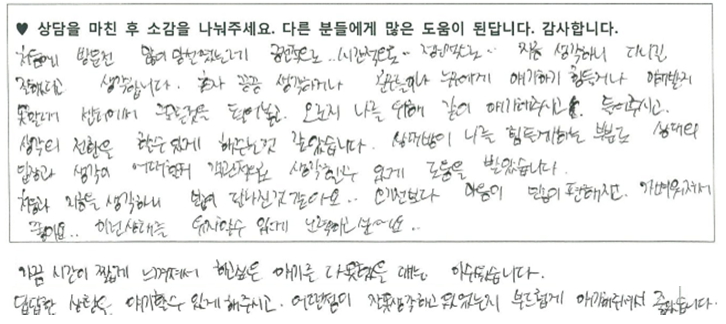 ♥ 상담을 마친 후 소감을 나눠주세요. 다른 분들에게 많은 도움이 된답니다. 감사합니다.
처음에 방문전 많이 망설였는데 금전적으로.. 시간적으로.. 정신적으로.. 지금 생각하니 다니길
잘했다고 생각합니다. 혼자 끙끙 생각하거나 누구에게 얘기하기 힘들거나 얘기하지
못한것을 오로지 나를 위해 같이 얘기해주시고. 들어주시고.
생각의 전환을 할수 있게 해주는것 같았습니다. 상대방이 나를 힘들게하는 부분을 상대의
입장과 생각이 어떠한지 객관적으로 생각할수 있게 도움을 받았습니다.
처음과 지금을 생각하니 많이 달라진것 같아요.. 예전보다 마음이 많이 편해지고. 가벼워져서
좋아요.. 이런상태를 유지할수 있게 노력하고 싶어요..
가끔 시간이 짧게 느껴져서 하고싶은 얘기를 다 못했을 때는 아쉬웠습니다.
답답한 상황을 얘기할수 있게 해주시고. 어떤점이 잘못생각하고 있었는지 부드럽게 얘기해주셔서 좋았습니다.